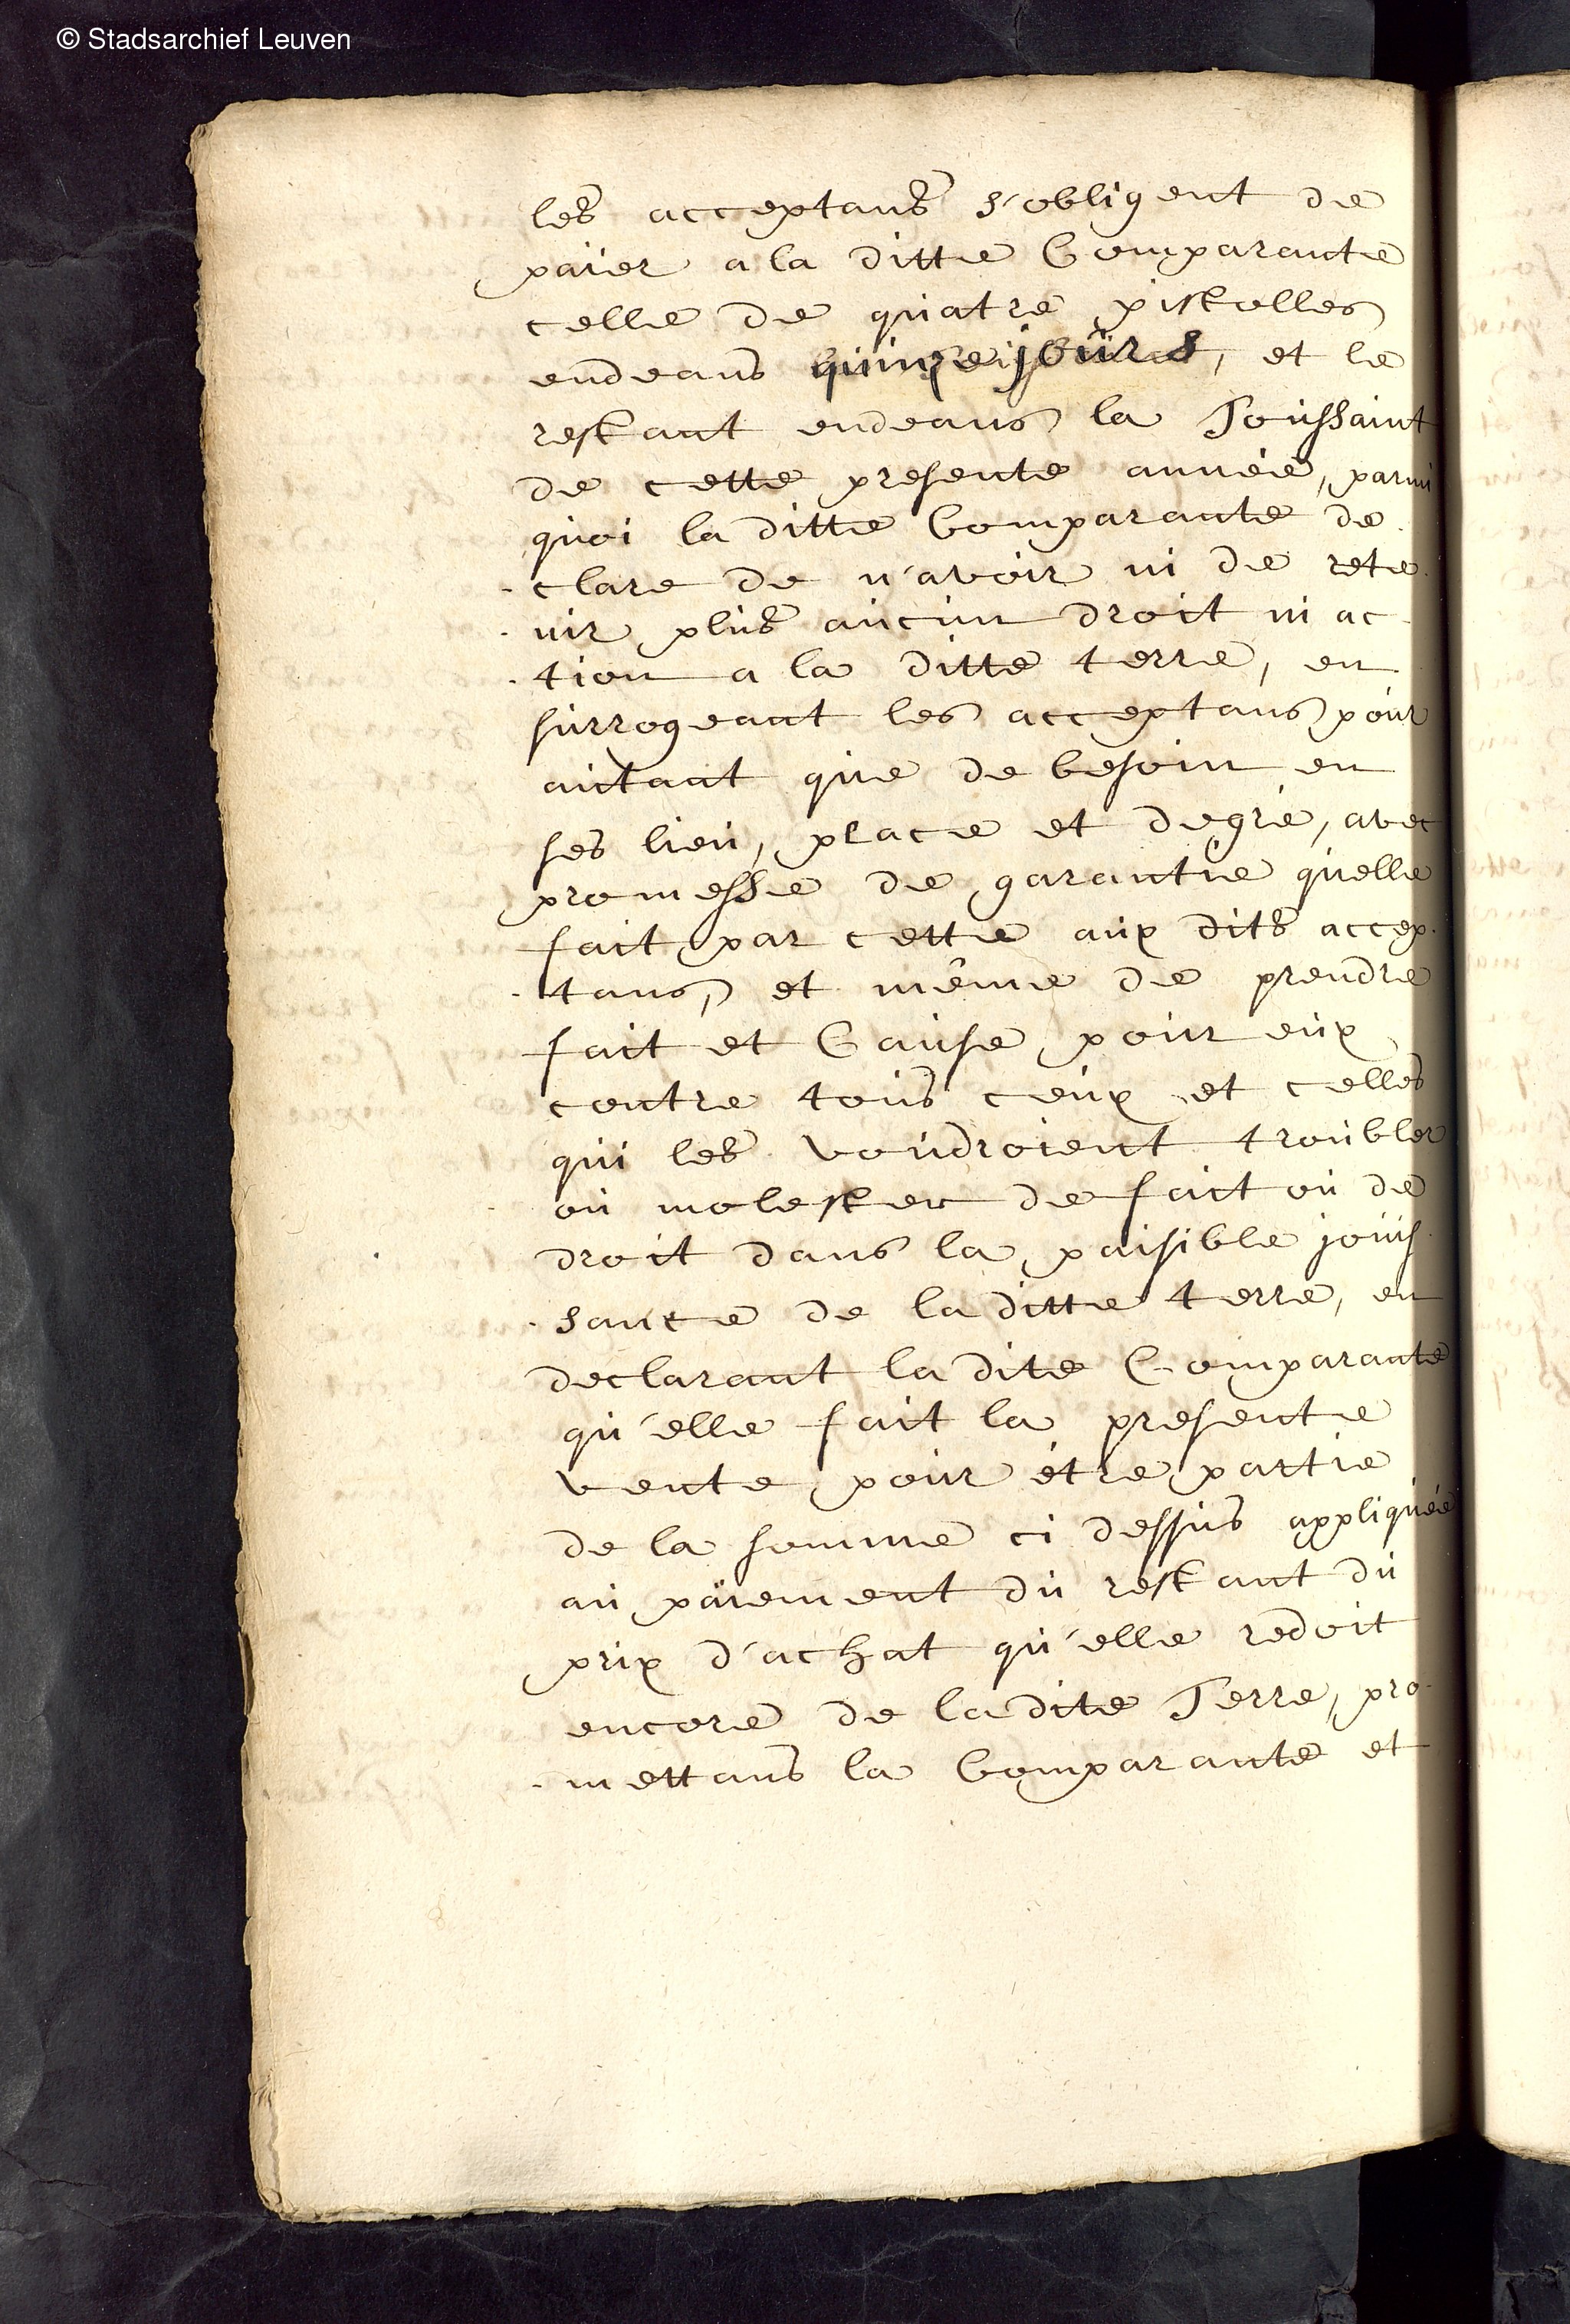 © Stadsarchief Leuven
les acceptans s'obligent de
païer a la ditte Comparante
celle de quatre pistolles
endeans quinze jours, et le
restant endeans la Toussaint
de cette presente année, parmi
quoi la ditte Comparante de
clare de n'avoir ni de rete
nir plus aucun droit ni ac
tion a la ditte terre, en
surrogeant les acceptans pour
autant que de besoin en
ses lieu, place et degré, avec
promesse de garantie quelle
fait par cette aux dits accep
tans, et même de prendre
fait et Cause pour eux
contre tous ceux et celles
qui les voudroient troubler
ou molester de fait ou de
droit dans la paisible jouis
sance de la ditte terre, en
declarant la dite Comparante
qu'elle fait la presente
vente pour étre partie
de la somme ci dessus appliquée
au païement du restant du
prix d'achat qu'elle redoit
encore de la dite Terre, pro
mettans la Comparante et